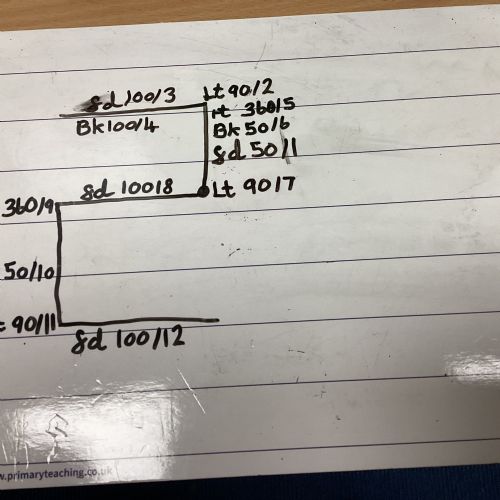 fd 100/3
Lt 90/2
Bk 100/4
rt 360/5
Bk 50/6
fd 50/1
fd 100/8
Lt 90/7
360/9
50/10
90/11
fd 100/12
w.primaryteaching.co.uk